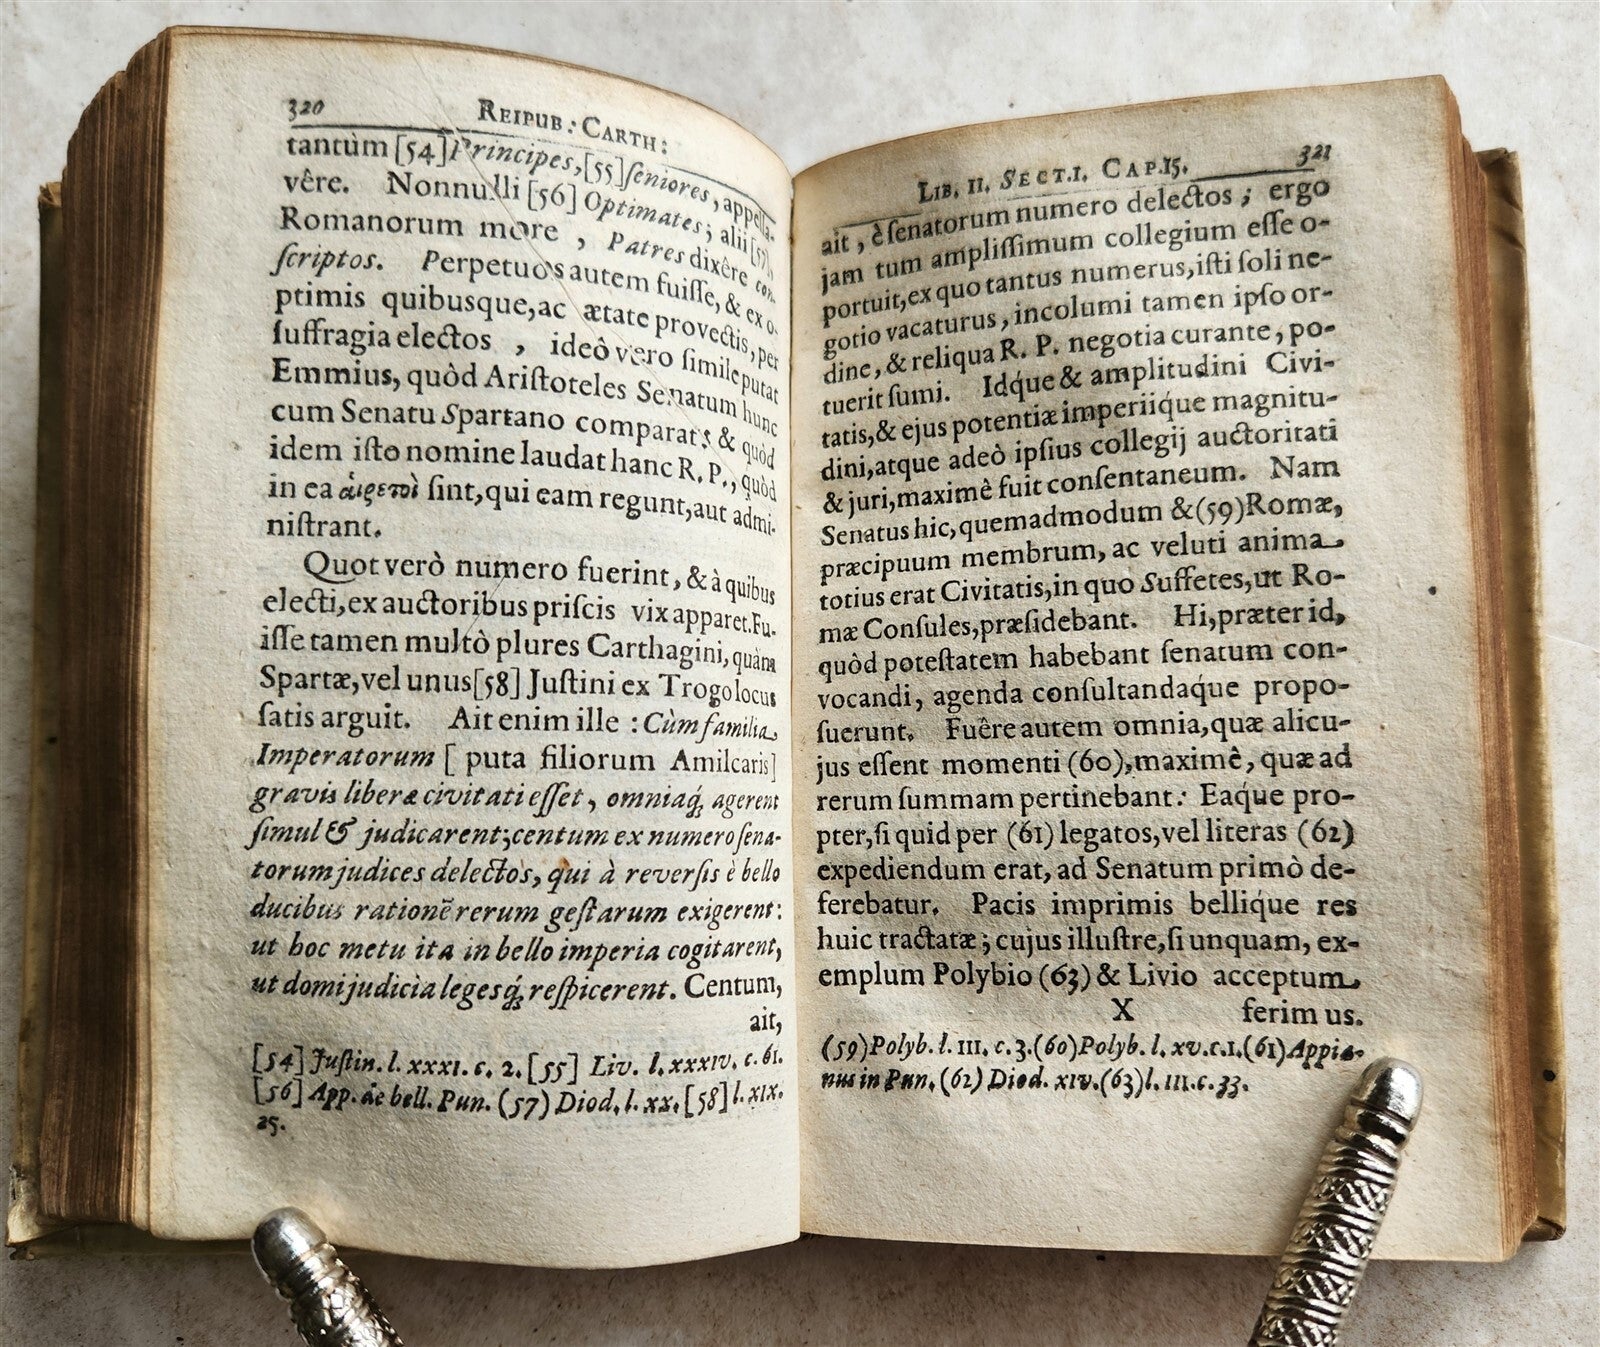 320 REIPUB: CARTH:
tantùm [54] Principes, [55] ſeniores, appella-
vêre. Nonnulli [56] Optimates; alii [57],
Romanorum more, Patres dixêre con-
ſcriptos. Perpetuos autem fuiſſe, & ex o-
ptimis quibusque, ac ætate provectis, per
ſuffragia electos, ideò vero ſimile putat
Emmius, quòd Ariſtoteles Senatum hunc
cum Senatu Spartano comparat: & quòd
idem iſto nomine laudat hanc R. P., quòd
in ea αἱρετοὶ ſint, qui eam regunt, aut admi-
niſtrant.
Quot verò numero fuerint, & à quibus
electi, ex auctoribus priſcis vix apparet. Fu-
iſſe tamen multò plures Carthagini, quàm
Spartæ, vel unus [58] Juſtini ex Trogo locus
ſatis arguit. Ait enim ille: Cùm familia
Imperatorum [puta filiorum Amilcaris]
gravis liberæ civitati eſſet, omniaq́; agerent
ſimul & judicarent; centum ex numero ſena-
torum judices delectos, qui à reverſis è bello
ducibus rationē rerum geſtarum exigerent:
ut hoc metu ita in bello imperia cogitarent,
ut domi judicia legesq́; reſpicerent. Centum,
ait,
[54] Juſtin. l. XXXI. c. 2. [55] Liv. l. XXXIV. c. 61.
[56] App. de bell. Pun. (57) Diod. l. XX. [58] l. XIX.
25.
LIB. II. SECT.I. CAP.15. 321
ait, è ſenatorum numero delectos; ergo
jam tum ampliſſimum collegium eſſe o-
portuit, ex quo tantus numerus, iſti ſoli ne-
gotio vacaturus, incolumi tamen ipſo or-
dine, & reliqua R. P. negotia curante, po-
tuerit ſumi. Idq́ue & amplitudini Civi-
tatis, & ejus potentiæ imperiiq́ue magnitu-
dini, atque adeò ipſius collegij auctoritati
& juri, maximè fuit conſentaneum. Nam
Senatus hic, quemadmodum & (59) Romæ,
præcipuum membrum, ac veluti anima
totius erat Civitatis, in quo Suffetes, ut Ro-
mæ Conſules, præſidebant. Hi, præter id,
quòd poteſtatem habebant ſenatum con-
vocandi, agenda conſultandaq́ue propo-
ſuerunt. Fuêre autem omnia, quæ alicu-
jus eſſent momenti (60), maximê, quæ ad
rerum ſummam pertinebant: Eaq́ue pro-
pter, ſi quid per (61) legatos, vel literas (62)
expediendum erat, ad Senatum primò de-
ferebatur. Pacis imprimis bellique res
huic tractatæ; cujus illuſtre, ſi unquam, ex-
emplum Polybio (63) & Livio acceptum
X ferimus.
(59) Polyb. l. III. c. 3. (60) Polyb. l. XV. c. 1. (61) Appia-
nus in Pun. (62) Diod. XIV. (63) l. III. c. 33.